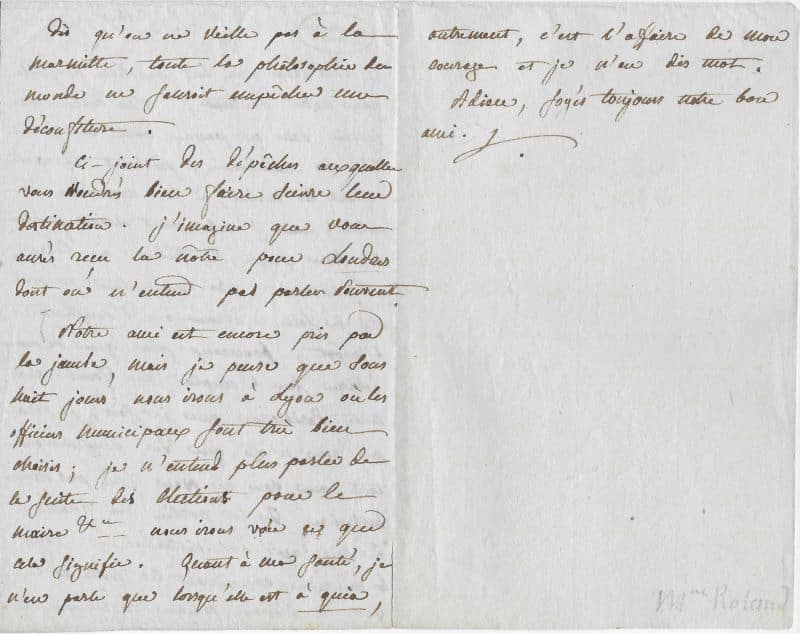 dès qu'on ne veille pas à la
marmitte, toute la philosophie du
monde ne sauroit empêcher une
déconfiture.
Ci-joint des dépêches auxquelles
vous voudrés bien faire suivre leur
destination. j'imagine que vous
aurés reçu la nôtre pour Londres
dont on n'entend pas parler souvent.
Notre ami est encore pris par
la jambe, mais je pense que sous
huit jours nous irons à Lyon où les
officiers municipaux sont très bien
choisis; je n'entend plus parler de
la suite des élections pour le
maire &c nous irons voir ce que
cela signifie. Quant à ma santé, je
n'en parle que lorsqu'elle est à quia,
autrement, c'est l'affaire de mon
courage et je n'en dis mot.
Adieu, soyés toujours notre bon
ami.
Mme Roland